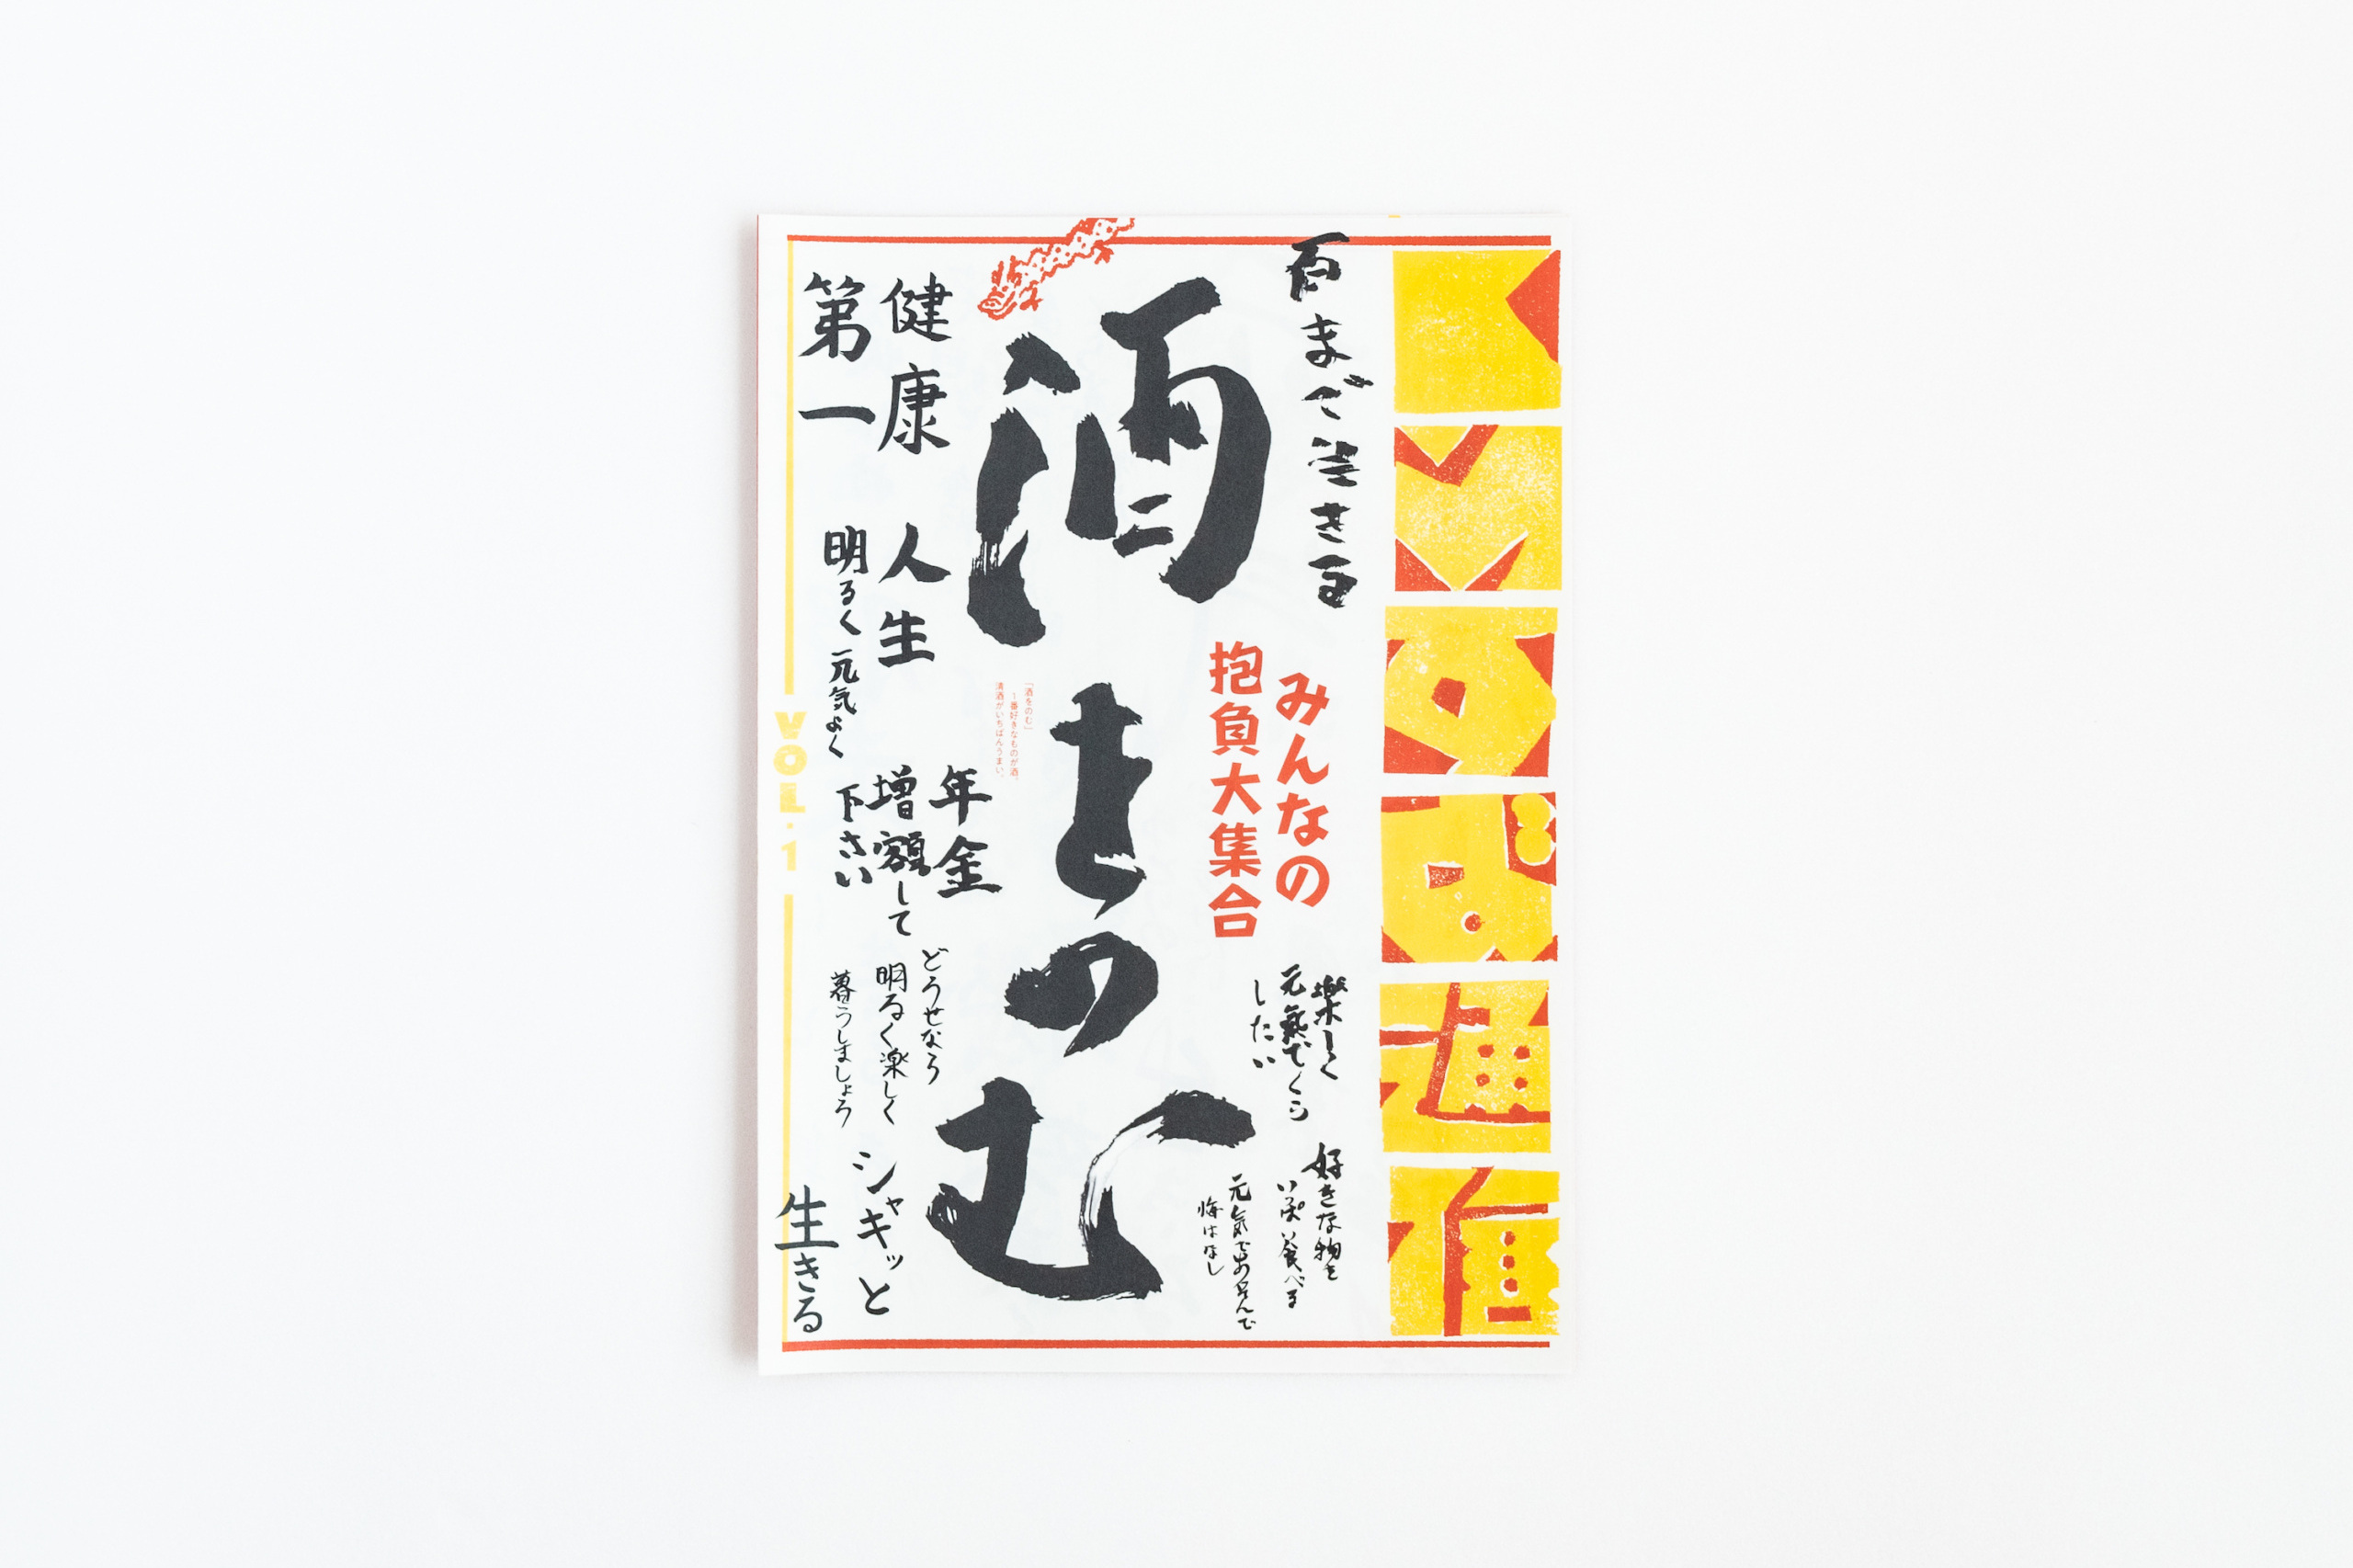 通信
百まで生きる
みんなの
抱負大集合
楽しく
元氣でくら
したい
好きな物を
いっぱい食べる
元気であそんで
悔はなし
酒をのむ
「酒をのむ」
1番好きなものが酒。
清酒がいちばんうまい。
健康
第一
人生
明るく元気よく
年金
増額して
下さい
どうせなら
明るく楽しく
暮らしましょう
シャキッと
生きる
VOL.1